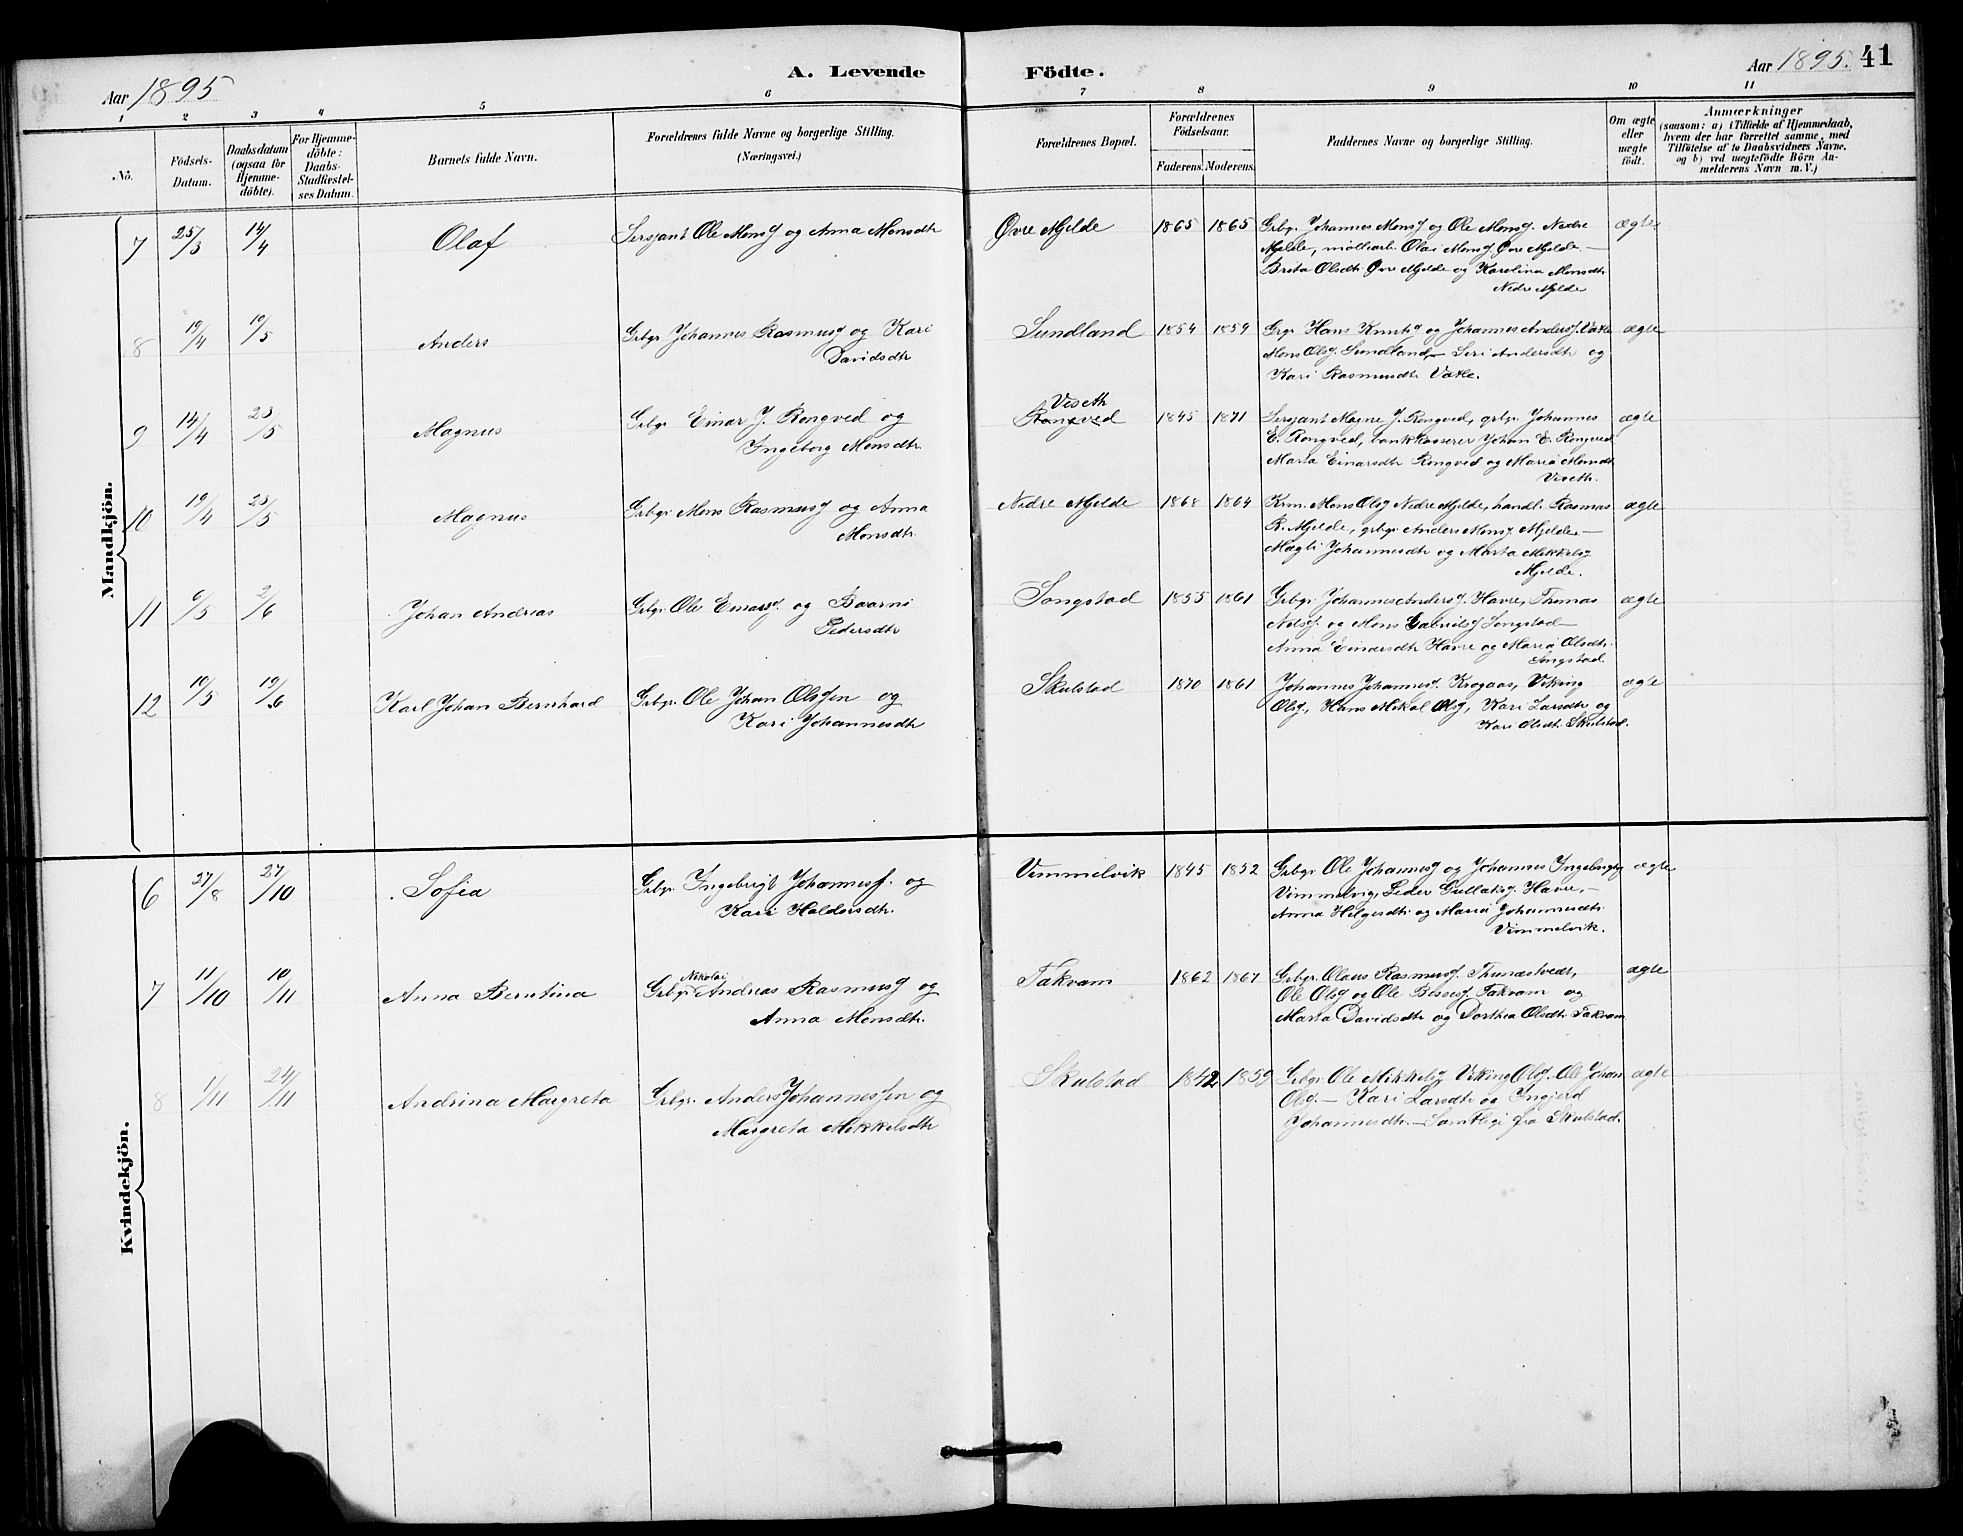 Aar 1895
A. Levende Födte.
Aar 1895. 41
1 2 3 4 5 6 7 8 9 10 11
No.
Födsels-Datum.
Daabsdatum (ogsaa for Hjemme-döbte).
For Hjemme-döbte: Daabs Stadfæstel-ses Datum.
Barnets fulde Navn.
Forældrenes fulde Navne og borgerlige Stilling.
(Næringsvei.)
Forældrenes Bopæl.
Forældrenes Födselsaar.
Faderens. Moderens.
Faddernes Navne og borgerlige Stilling.
Om ægte eller uægte födt.
Anmærkninger
(saasom: a) i Tilfælde af Hjemmedaab,
hvem der har forrettet samme, med
Tilföielse af to Daabsvidners Navne.
og b) ved uægtefödte Börn An-
melderens Navn m. V.)
Mandkjön.
7 25/3 14/4 Olaf Sersjant Ole Monsf og Anna Monsdtr Øvre Mjelde 1865 1865 Grbgr. Johannes Monsf og Ole Monsf. Nedre ægte
Mjelde, møllearb. Olai Monsf. Øvre Mjelde –
Brita Olsdtr. Øvre Mjelde og Karolina Monsdtr
Nedre Mjelde
8 19/4 19/5 Anders Grbgr Johannes Rasmusf og Kari Sundland 1854 1859 Grgr. Hans Knutsf og Johannes Andersf. Vatle ægte
Davidsdtr Mons Olsf. Sundland – Seri Andersdtr og
Kari Rasmusdtr Vatle.
9 14/4 23/5 Magnus Grbgr Einar J. Rongved og Viseth
Rongved 1845 1871 Sersjant Magne J. Rongved, grbgr. Johannes ægte
Ingeborg Monsdtr. E. Rongved, bankkasserer Johan E. Rongved
Marta Einarsdtr Rongved og Maria Monsdtr
Viseth.
10 19/4 23/5 Magnus Grbgr Mons Rasmusf og Anna Nedre Mjelde 1868 1864 Krm. Mons Olsf Nedre Mjelde, handl. Rasmus ægte
Monsdtr. R. Mjelde, grbgr Anders Monsf. Mjelde –
Magli Johannesdtr og Marta Mikkelsf
Mjelde.
11 6/5 2/6 Johan Andreas Grbgr Ole Einarsf. og Baarni Songstad 1855 1861 Grbgr. Johannes Andersf. Havre, Thomas ægte
Pedersdtr Nilsf. og Mons Gabrielsf Songstad –
Anna Einarsdtr Havre og Maria Olsdtr.
Songstad.
12 19/5 19/6 Karl Johan Bernhard Grbgr. Ole Johan Olssen og Skulstad 1870 1861 Johannes Johannesf. Krogaas, Viking ægte
Kari Johannesdtr Olsf., Hans Mikal Olsf, Kari Larsdtr og
Kari Olsdtr. Skulstad.
Kvindekjön.
6 27/8 27/10 Sofia Grbgr. Ingebrigt Johannesf. og Vimmelvik 1845 1852 Grbgr. Ole Johannesf og Johannes Ingebrigtsf ægte
Kari Haldorsdtr. Vimmelvig, Peder Gullaksf. Havre, –
Anna Helgesdtr. og Maria Johannesdtr.
Vimmelvik.
7 11/10 10/11 Anna Berntina Grbgr Nikolai Andreas Rasmusf og Takvam 1862 1867 Grbgr. Olaus Rasmusf. Thunestvedt, ægte
Anna Monsdtr. Ole Olsf og Ole Bessesf. Takvam og
Marta Davidsdtr og Dorthea Olsdtr Takvam
8 1/11 24/11 Andrina Margreta Grbgr. Anders Johannessen og Skulstad 1842 1859 Grbgr Ole Mikkelsf Viking Olsf. Ole Johan ægte
Margreta Mikkelsdtr Olsf. – Kari Larsdtr og Ingjerd
Johannesdtr. – Samtlige fra Skulstad.